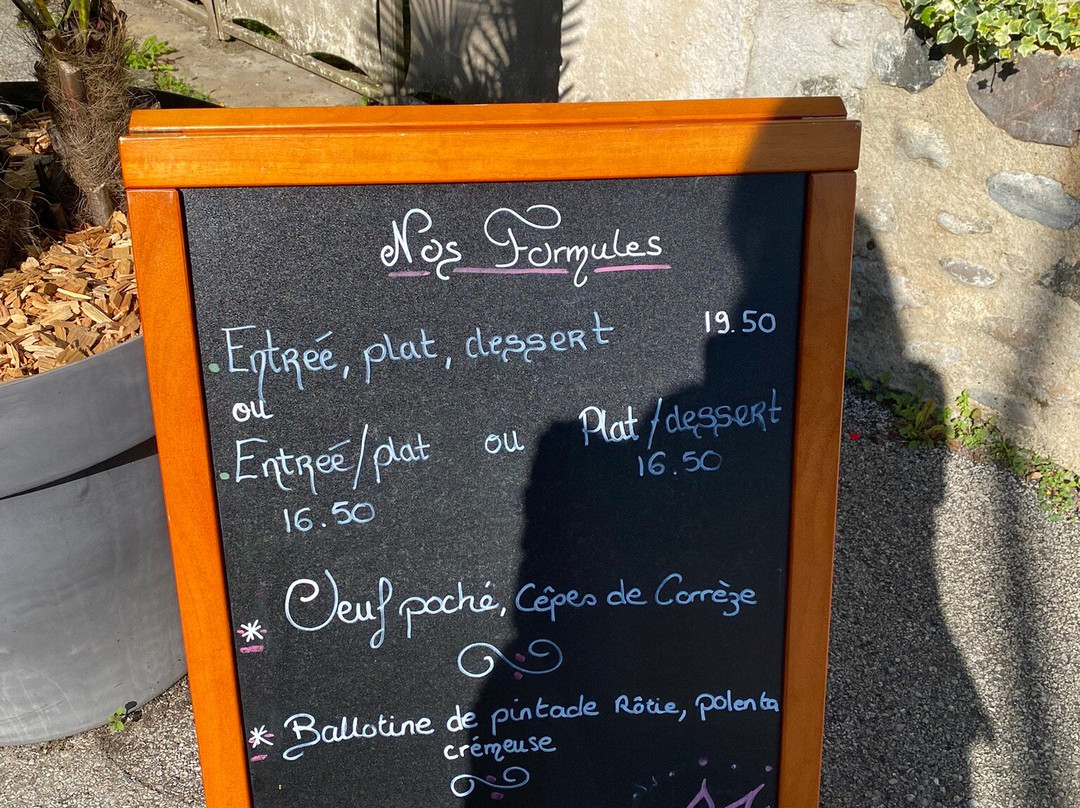 Nos Formules
Entrée, plat, dessert 19.50
ou
Entrée/plat ou Plat/dessert
16.50 16.50
* Oeuf poché, Cêpes de Corrèze
* Ballotine de pintade Rôtie, polenta
crémeuse